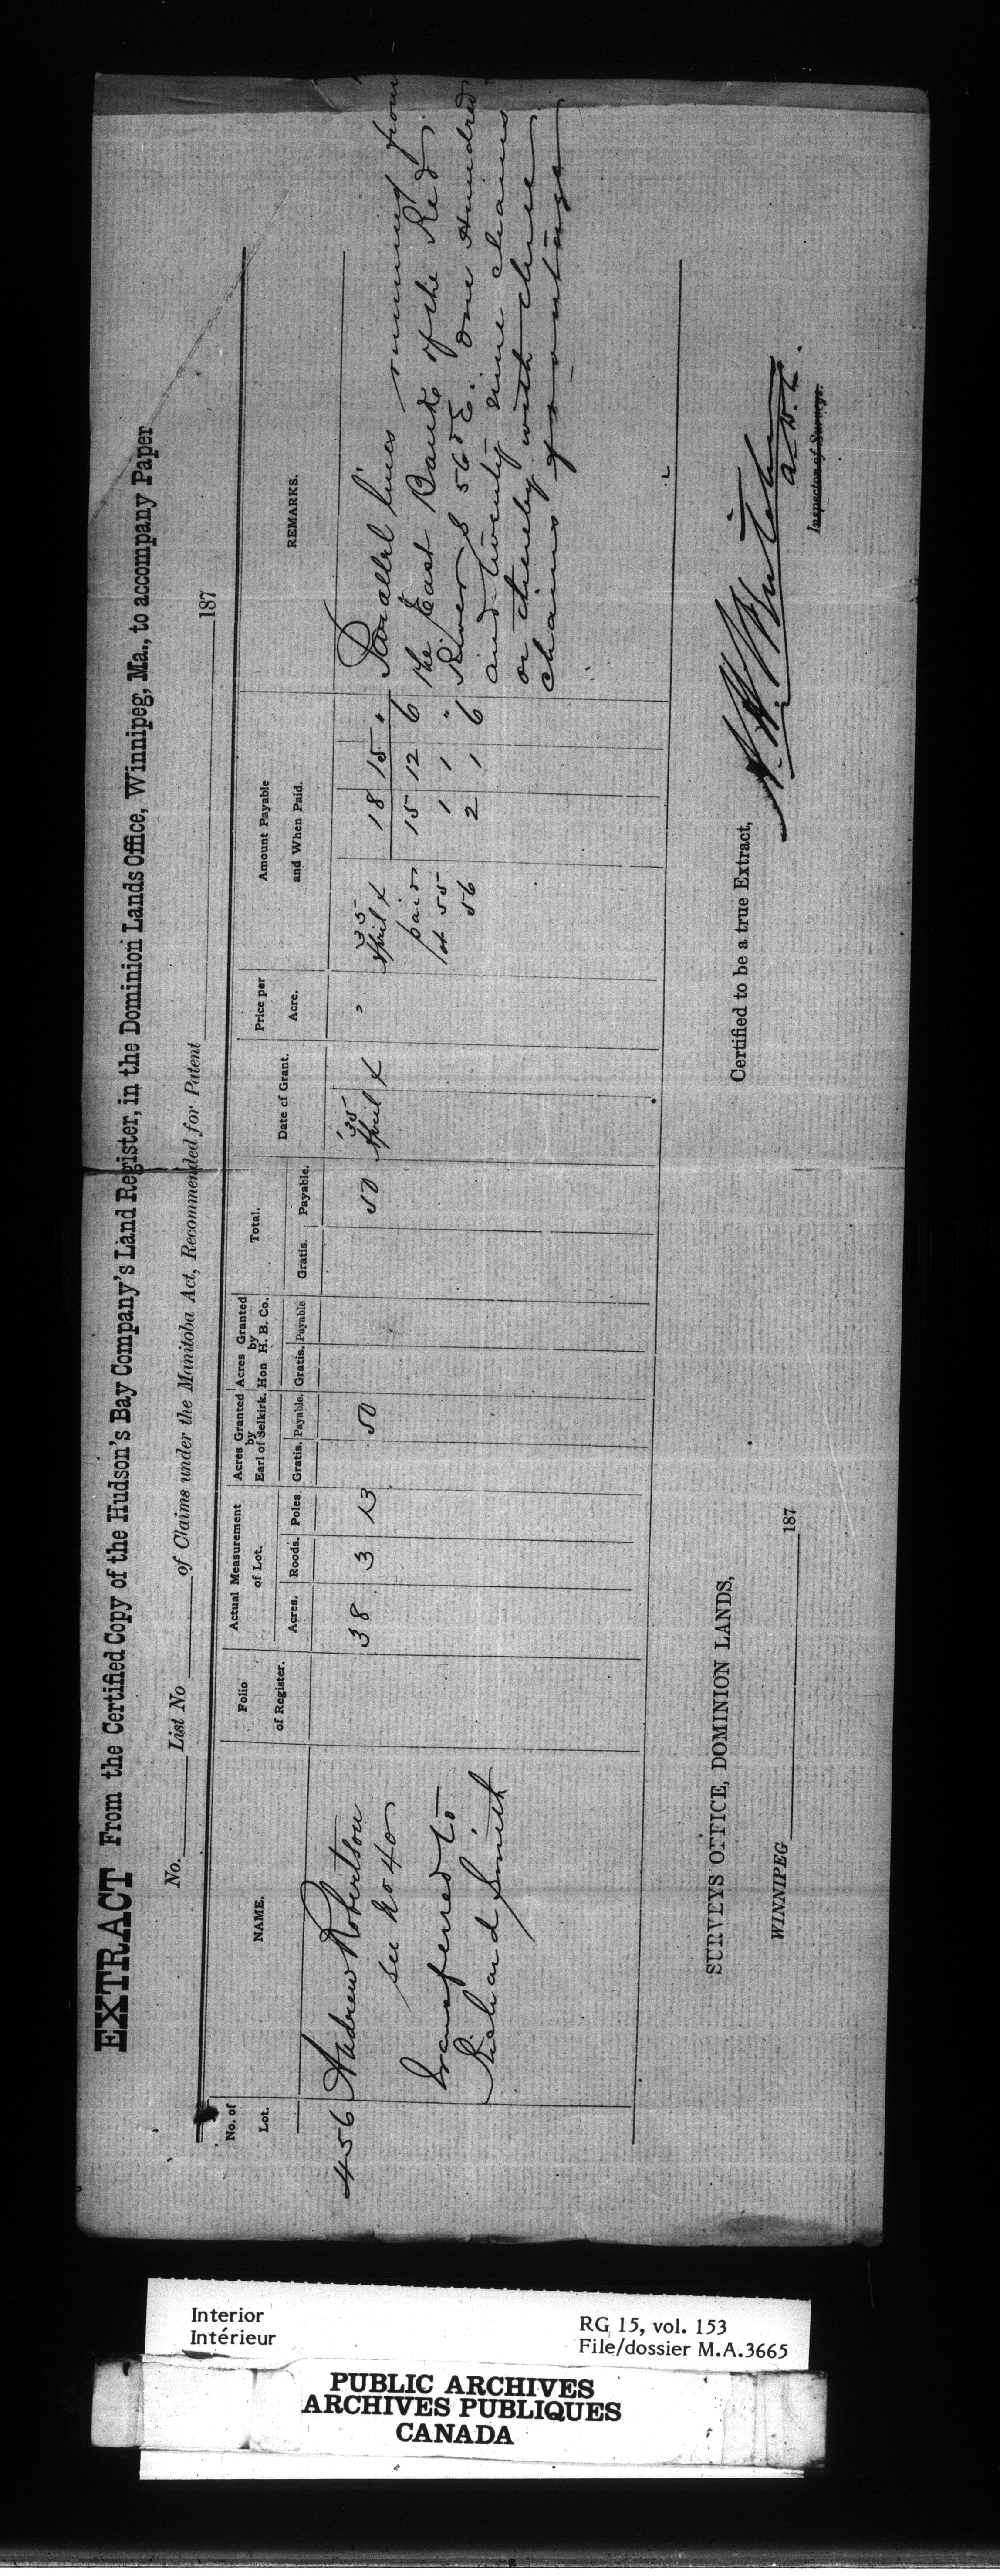 EXTRACT From the Certified Copy of the Hudson's Bay Company's Land Register, in the Dominion Lands Office, Winnipeg, Ma., to accompany Paper
No. List No of Claims under the Manitoba Act, Recommended for Patent 187
No. of Lot.
NAME.
Folio of Register.
Actual Measurement of Lot.
Acres. Roods. Poles
Acres Granted by Earl of Selkirk.
Gratis. Payable.
Acres Granted by Hon H. B. Co.
Gratis. Payable
Total.
Gratis. Payable.
Date of Grant.
Price per Acre.
Amount Payable and When Paid.
REMARKS.
456 Andrew Robertson 38 3 13 50 50 '35 April X " 35 April X 18 15 "
see No 40
transferred to
Richard Smith
paid 15 12 6
lot 55 1 1 "
56 2 1 6
Parallel lines running from
the East Bank of the Red
River S 56° E. One Hundred
and twenty nine chains
or thereby with three
chains frontage
SURVEYS OFFICE, DOMINION LANDS,
WINNIPEG 187
Certified to be a true Extract,
Inspector of Surveys.
Interior
Intérieur
RG 15, vol. 153
File/dossier M.A.3665
PUBLIC ARCHIVES
ARCHIVES PUBLIQUES
CANADA